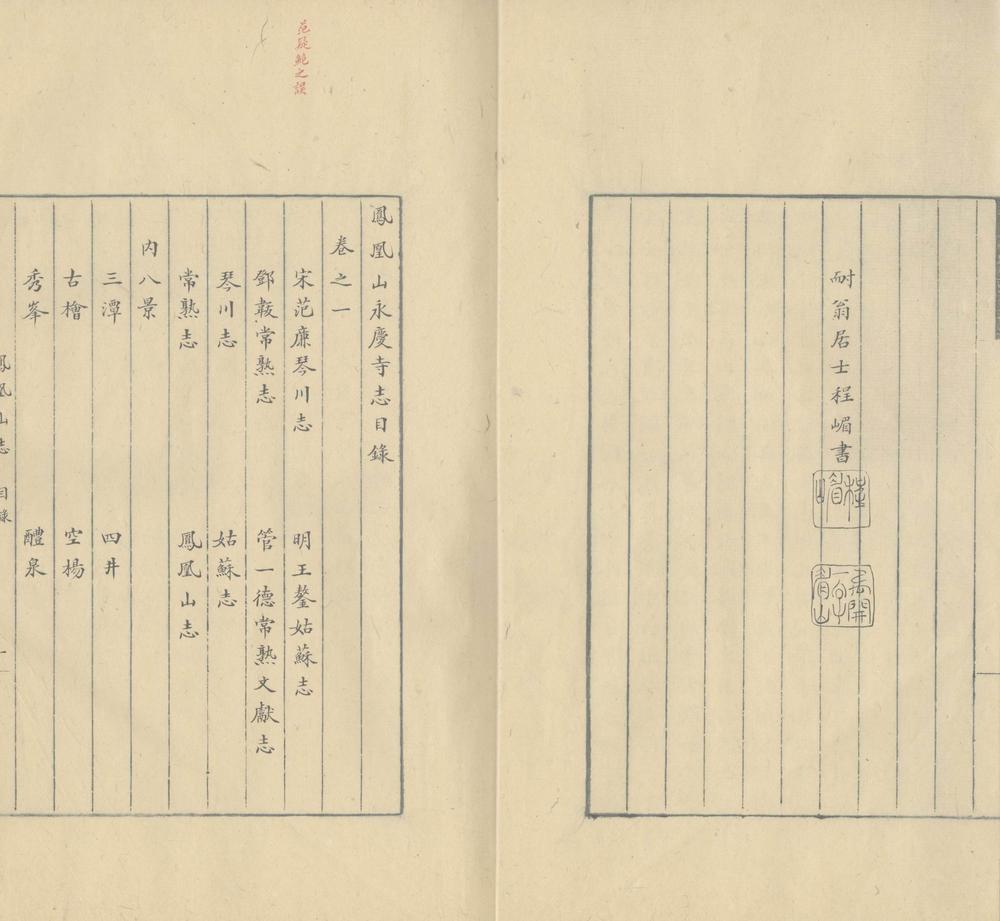 耐翁居士程嵋書
程嵋
范疑鮑之誤
鳳凰山永慶寺志目錄
卷之一
宋范廉琴川志 明王鏊姑蘇志
鄧韍常熟志 管一德常熟文獻志
琴川志 姑蘇志
常熟志 鳳凰山志
内八景
三潭 四井
古檜 空楊
秀峯 醴泉
鳳凰山志 目錄 一